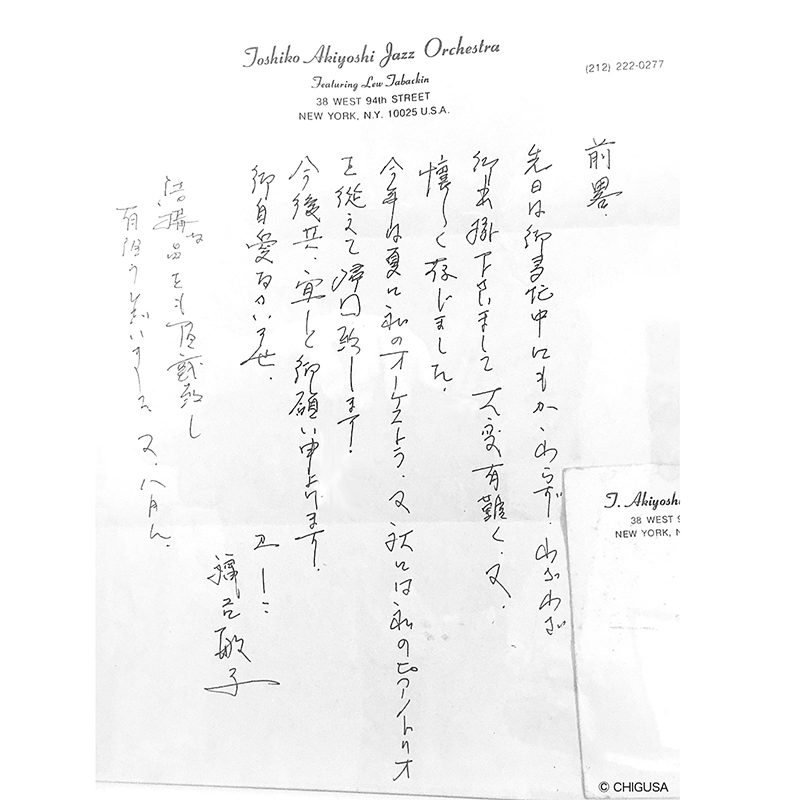 Toshiko Akiyoshi Jazz Orchestra
Featuring Lew Tabackin
38 WEST 94th STREET
NEW YORK, N.Y. 10025 U.S.A.
(212) 222-0277
前畧.
先日は御多忙中にもかゝわらず、わざわざ
御出掛下さいまして大変有難く、又、
懐しく存じました.
今年は夏に私のオーケストラ、又秋には私のピアノトリオ
を従えて帰国致します!
今後共、宜しく御願い申上げます.
御自愛なさいませ.
穐吉敏子
結構な品をも頂戴致し
有難う御いました、又、八月に.
T. Akiyoshi
38 WEST 9
NEW YORK, N
© CHIGUSA